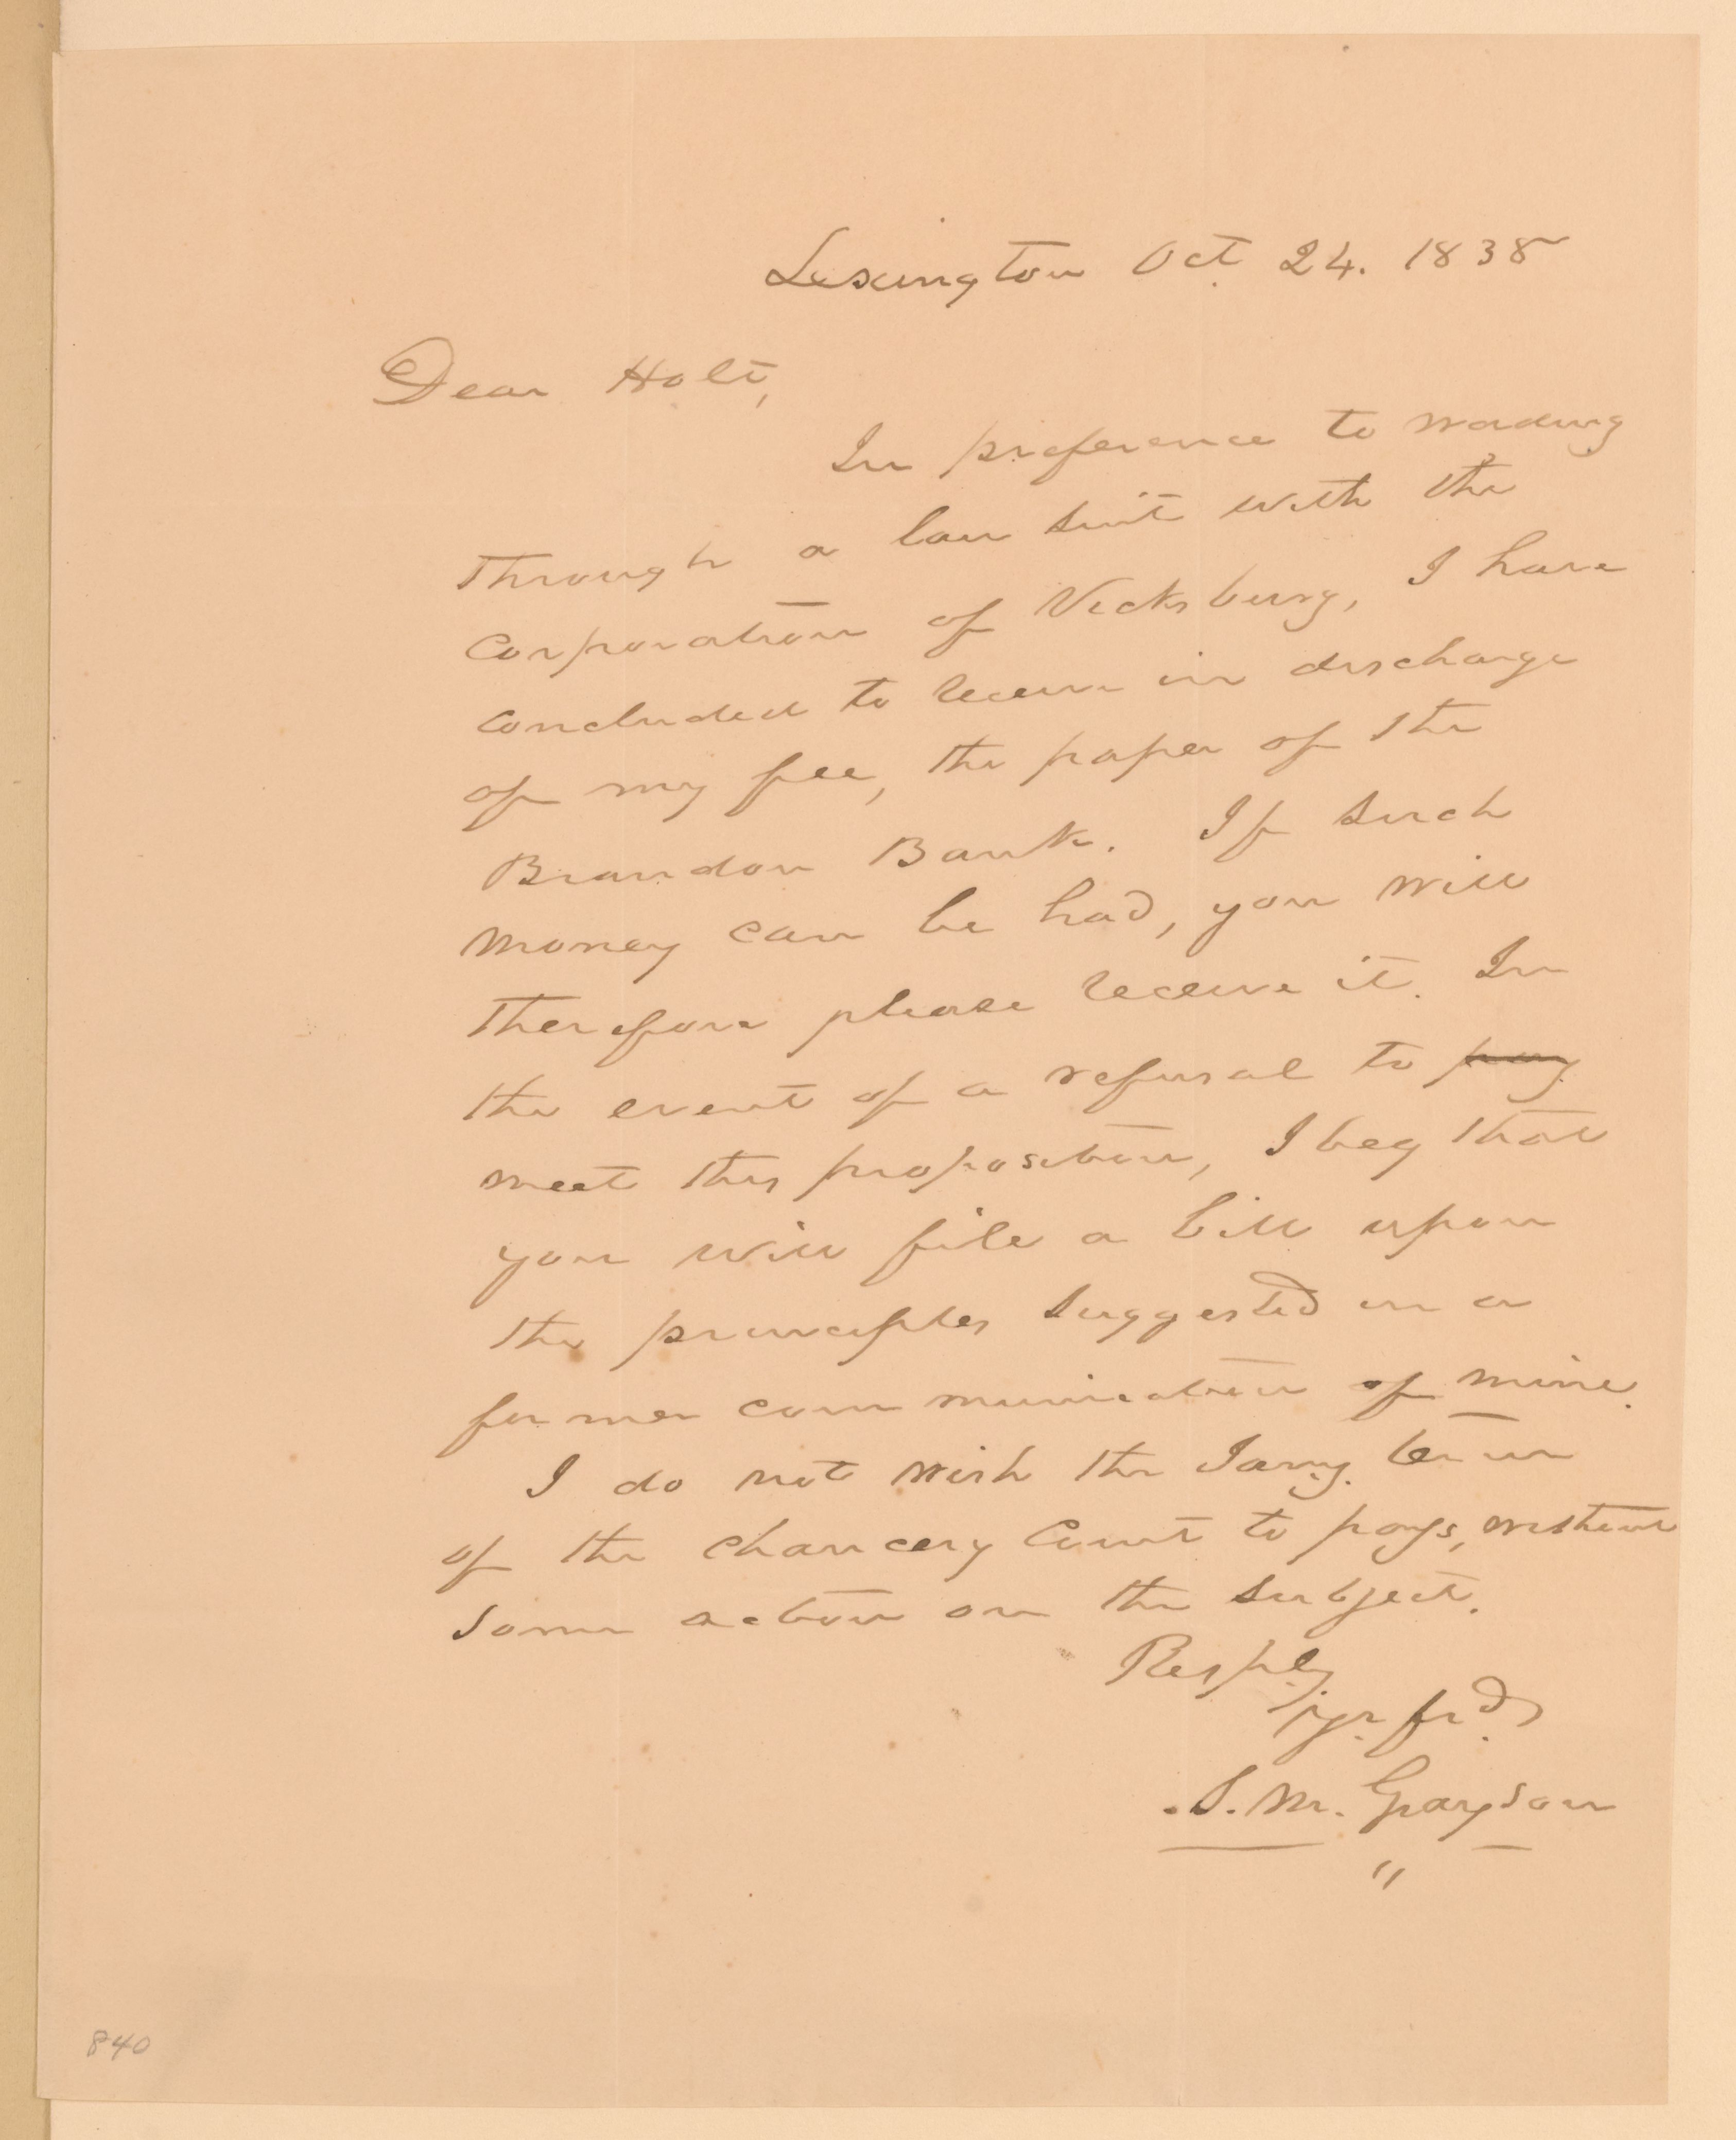 Lexington Oct. 24. 1838
Dear Holt,
In preference to wading
through a law suit with the
corporation of Vicksburg, I have
concluded to receive in discharge
of my fee, the paper of the
Brandon Bank. If such
money can be had, you will
therefore please receive it. In
the event of a refusal to pay
meet this proposition, I beg that
you will file a bill upon
the principles suggested in a
former communication of mine.
I do not wish the Jany. term
of the chancery Court to pass, without
some action on the subject.
Resply
yr. frd.
S. M. Grayson
"
840